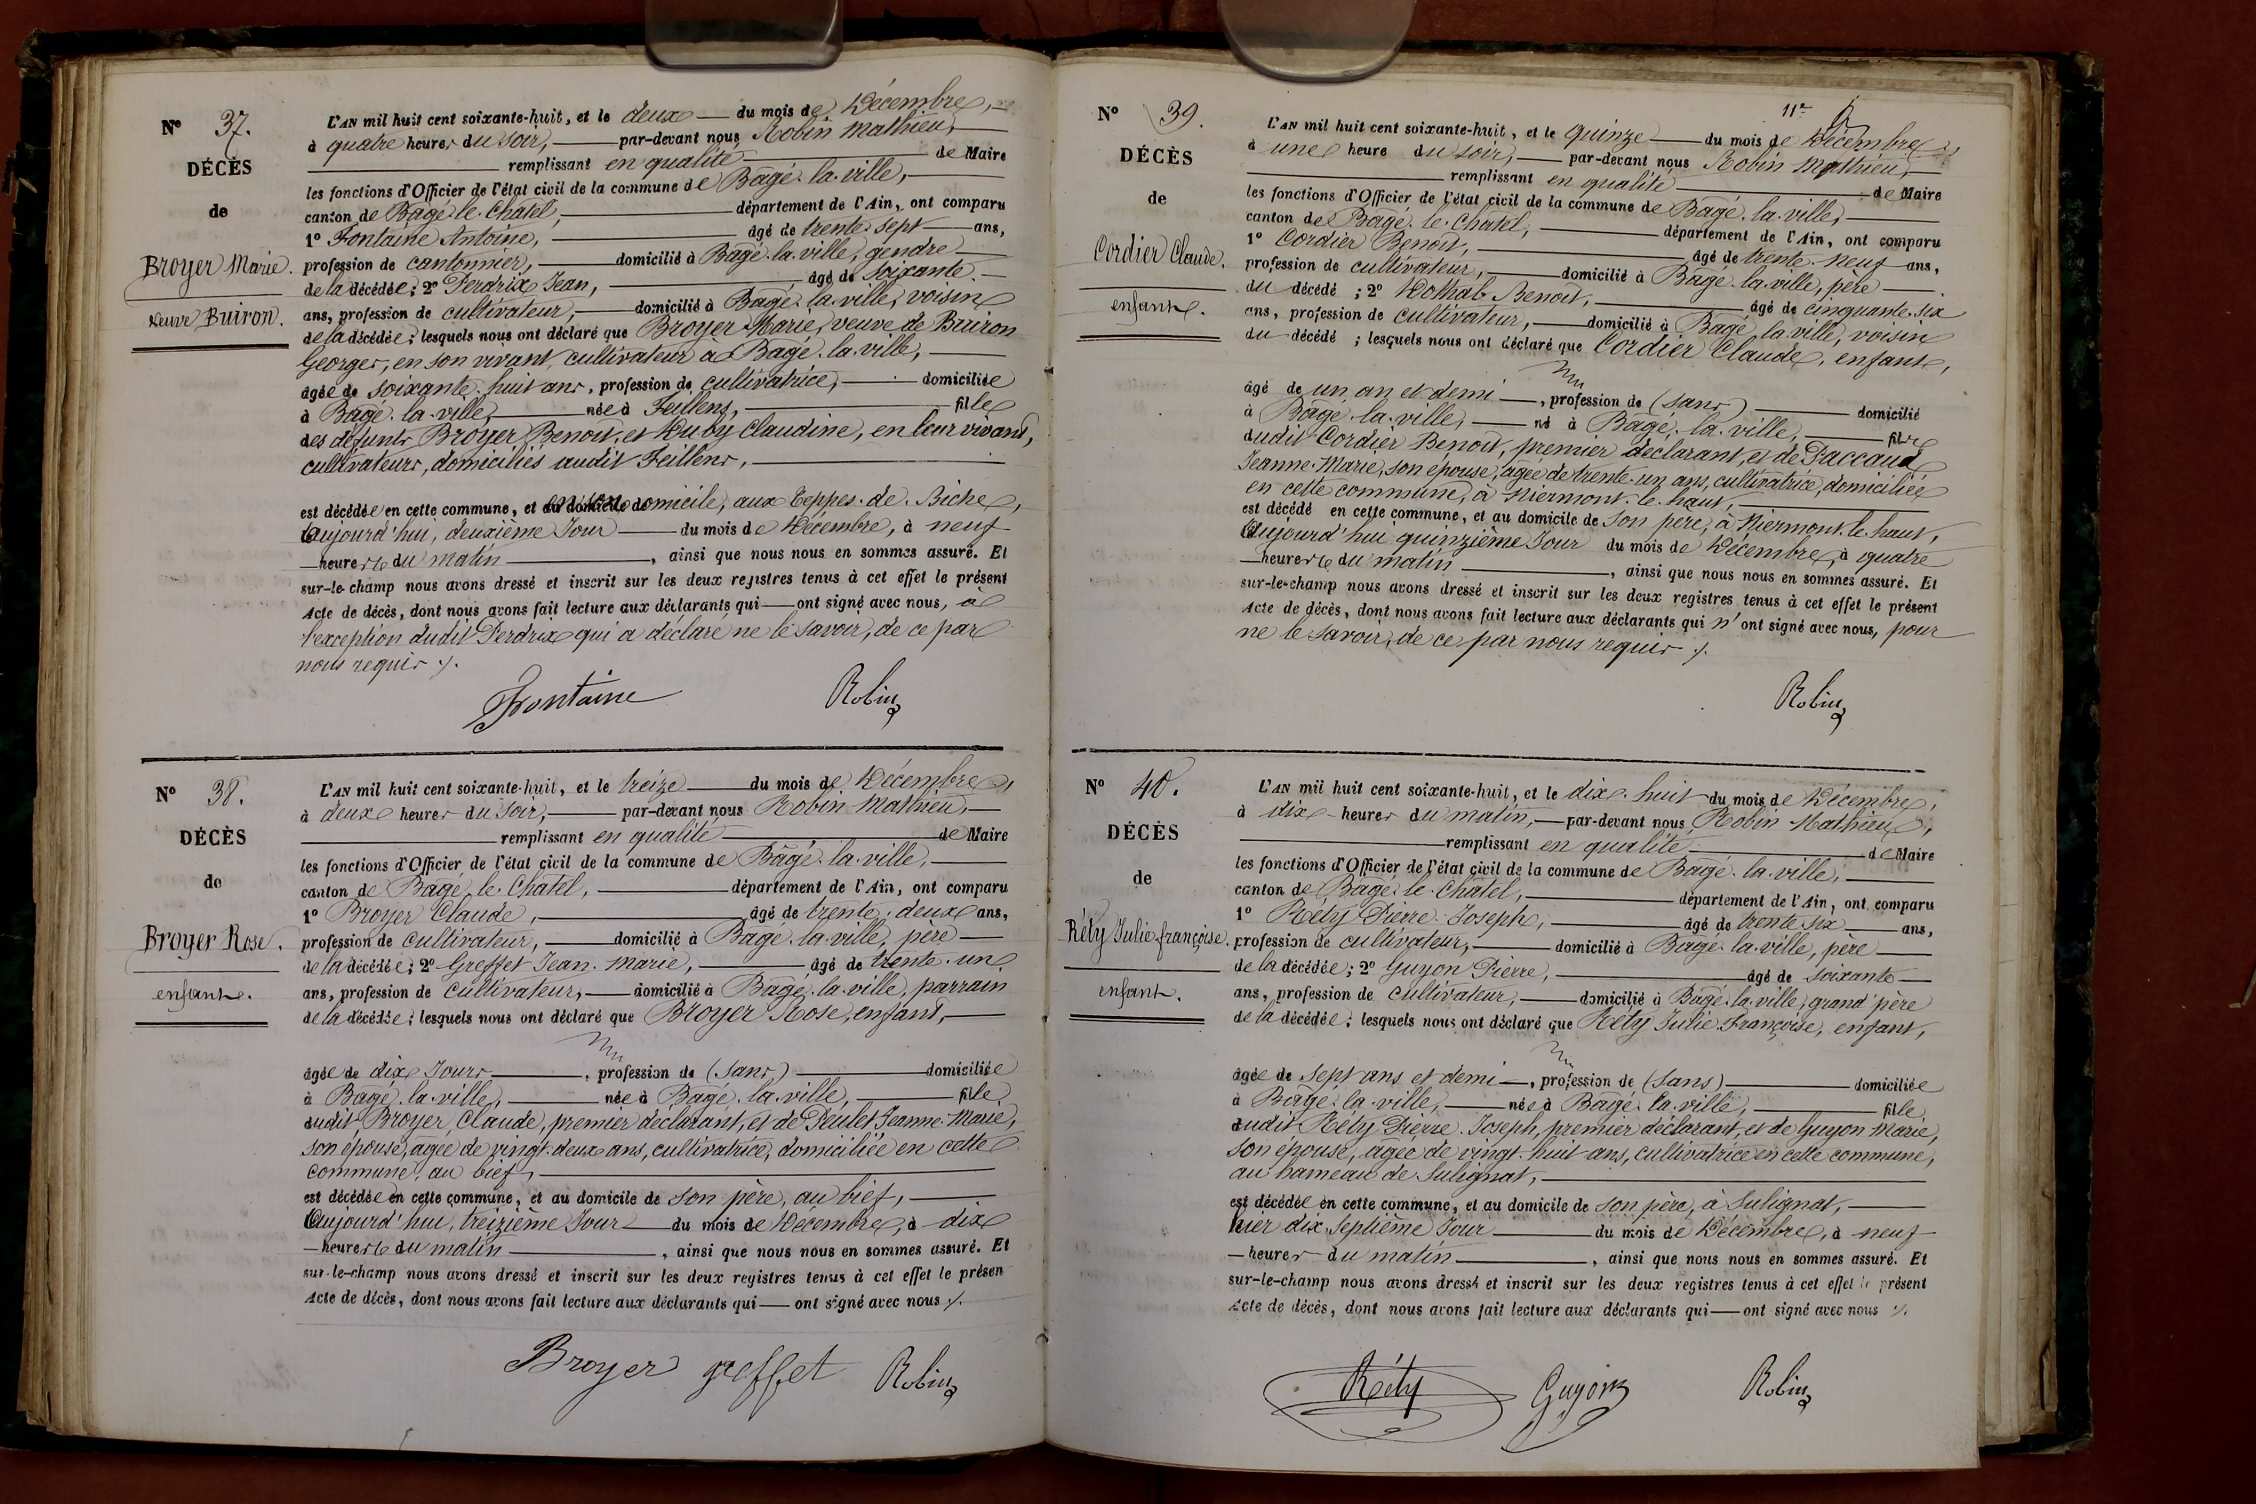 N° 37.
DÉCÈS
de
Broyer Marie.
veuve Buiron.
L'AN mil huit cent soixante-huit, et le deux du mois de Décembre,
à quatre heures du soir, par-devant nous Robin Mathieu,
remplissant en qualité de Maire
les fonctions d'Officier de l'état civil de la commune de Bagé-la-ville,
canton de Bagé-le-Chatel, département de l'Ain, ont comparu
1° Fontaine Antoine, âgé de trente-sept ans,
profession de cantonnier, domicilié à Bagé-la-ville, gendre
de la décédée; 2° Perdrix Jean, âgé de soixante
ans, profession de cultivateur, domicilié à Bagé-la-ville, voisin
de la décédée; lesquels nous ont déclaré que Broyer Marie, veuve de Buiron
Georges, en son vivant, cultivateur à Bagé-la-ville,
âgée de soixante-huit ans, profession de cultivatrice, domiciliée
à Bagé-la-ville, née à Feillens, fille
des défunts Broyer Benoit, et Duby Claudine, en leur vivant,
cultivateurs, domiciliés audit Feillens,
est décédée en cette commune, et en son domicile, aux Teppes-de-Biche,
aujourd'hui, deuxième Jour du mois de Décembre, à neuf
heures du matin, ainsi que nous nous en sommes assuré. Et
sur-le-champ nous avons dressé et inscrit sur les deux registres tenus à cet effet le présent
Acte de décès, dont nous avons fait lecture aux déclarants qui ont signé avec nous, à
l'exception dudit Perdrix qui a déclaré ne le savoir, de ce par
nous requis ./.
Fontaine Robin
N° 38.
DÉCÈS
de
Broyer Rose.
enfant.
L'AN mil huit cent soixante-huit, et le treize du mois de Décembre,
à deux heures du soir, par-devant nous Robin Mathieu,
remplissant en qualité de Maire
les fonctions d'Officier de l'état civil de la commune de Bagé-la-ville,
canton de Bagé-le-Chatel, département de l'Ain, ont comparu
1° Broyer Claude, âgé de trente-deux ans,
profession de cultivateur, domicilié à Bagé-la-ville, père
de la décédée; 2° Greffet Jean-Marie, âgé de trente-un
ans, profession de cultivateur, domicilié à Bagé-la-ville, parrain
de la décédée; lesquels nous ont déclaré que Broyer Rose, enfant,
âgée de dix Jours, profession de (sans) domiciliée
à Bagé-la-ville, née à Bagé-la-ville, fille
dudit Broyer Claude, premier déclarant, et de Peulet Jeanne-Marie,
son épouse, agée de vingt-deux ans, cultivatrice, domiciliée en cette
commune, au bief,
est décédée en cette commune, et au domicile de son père, au bief,
aujourd'hui, treizième Jour du mois de Décembre, à dix
heures du matin, ainsi que nous nous en sommes assuré. Et
sur-le-champ nous avons dressé et inscrit sur les deux registres tenus à cet effet le présen
Acte de décès, dont nous avons fait lecture aux déclarants qui ont signé avec nous ./.
Broyer greffet Robin
11e
N° 39.
DÉCÈS
de
Cordier Claude.
enfant.
L'AN mil huit cent soixante-huit, et le quinze du mois de Décembre,
à une heure du soir, par-devant nous Robin Mathieu,
remplissant en qualité de Maire
les fonctions d'Officier de l'état civil de la commune de Bagé-la-ville,
canton de Bagé-le-Chatel, département de l'Ain, ont comparu
1° Cordier Benoit, âgé de trente-neuf ans,
profession de cultivateur, domicilié à Bagé-la-ville, père
du décédé; 2° Dothal Benoit, âgé de cinquante-six
ans, profession de cultivateur, domicilié à Bagé-la-ville, voisin
du décédé; lesquels nous ont déclaré que Cordier Claude, enfant,
âgé de un an et demi, profession de (sans) domicilié
à Bagé-la-ville, né à Bagé-la-ville, fils
dudit Cordier Benoit, premier déclarant, et de Paccaud
Jeanne-Marie, son épouse, agée de trente-un ans, cultivatrice, domiciliés
en cette commune, à Niermont-le-haut,
est décédé en cette commune, et au domicile de son père, à Niermont-le-haut,
aujourd'hui quinzième Jour du mois de Décembre, à quatre
heures du matin, ainsi que nous nous en sommes assuré. Et
sur-le-champ nous avons dressé et inscrit sur les deux registres tenus à cet effet le présent
Acte de décès, dont nous avons fait lecture aux déclarants qui n'ont signé avec nous, pour
ne le savoir, de ce par nous requis ./.
Robin
N° 40.
DÉCÈS
de
Réty Julie françoise.
enfant.
L'AN mil huit cent soixante-huit, et le dix-huit du mois de Décembre,
à dix heures du matin, par-devant nous Robin Mathieu,
remplissant en qualité de Maire
les fonctions d'Officier de l'état civil de la commune de Bagé-la-ville,
canton de Bagé-le-Chatel, département de l'Ain, ont comparu
1° Réty Pierre-Joseph, âgé de trente six ans,
profession de cultivateur, domicilié à Bagé-la-ville, père
de la décédée; 2° Guyon Pierre, âgé de soixante
ans, profession de cultivateur, domicilié à Bagé-la-ville, grand'père
de la décédée; lesquels nous ont déclaré que Réty Julie Françoise, enfant,
âgée de sept ans et demi, profession de (sans) domiciliée
à Bagé-la-ville, née à Bagé-la-ville, fille
dudit Réty Pierre-Joseph, premier déclarant, et de Guyon Marie,
son épouse, agée de vingt-huit ans, cultivatrice en cette commune,
au hameau de Sulignat,
est décédée en cette commune, et au domicile de son père, à Sulignat,
hier dix-septième Jour du mois de Décembre, à neuf
heures du matin, ainsi que nous nous en sommes assuré. Et
sur-le-champ nous avons dressé et inscrit sur les deux registres tenus à cet effet le présent
Acte de décès, dont nous avons fait lecture aux déclarants qui ont signé avec nous ./.
Réty Guyon Robin